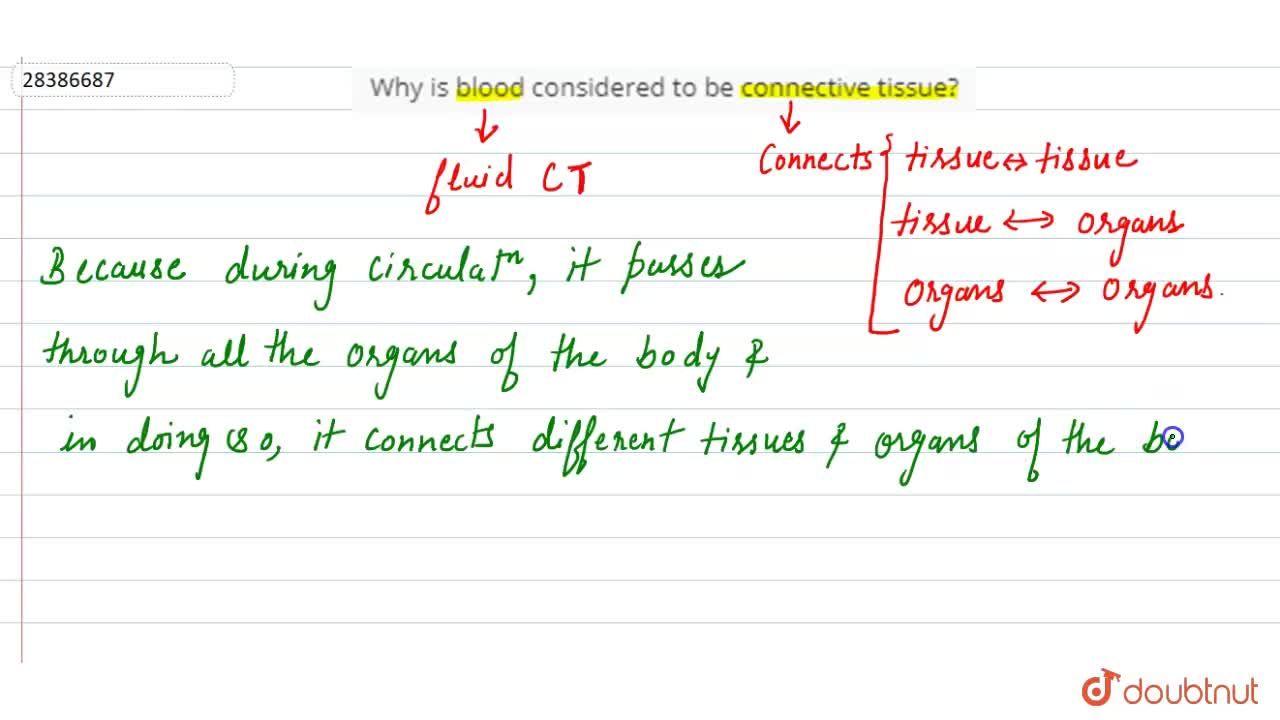 28386687
Why is blood considered to be connective tissue?
↓ ↓
fluid CT
Connects { tissue ↔ tissue
tissue ↔ organs
organs ↔ organs.
Because during circulatⁿ, it passes
through all the organs of the body &
in doing so, it connects different tissues & organs of the bo
doubtnut